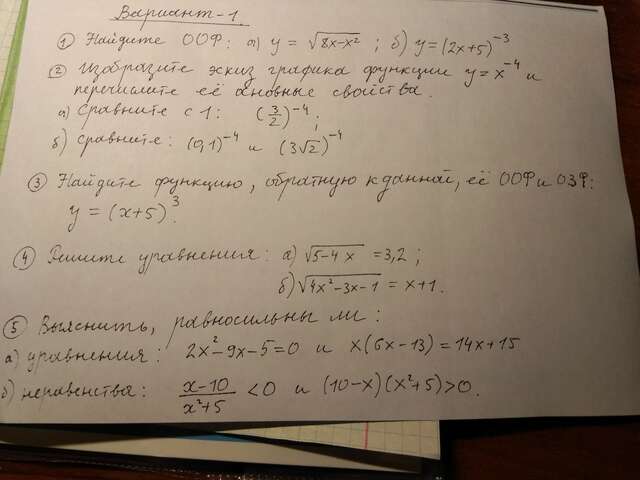 Вариант-1.
① Найдите ООФ: а) y = √(8x-x²) ; б) y=(2x+5)⁻³
② Изобразите эскиз графика функции y=x⁻⁴ и
перечислите её основные свойства.
а) Сравните с 1: (3/2)⁻⁴;
б) Сравните: (0,1)⁻⁴ и (3√2)⁻⁴
③ Найдите функцию, обратную к данной, её ООФ и ОЗФ:
y = (x+5)³.
④ Решите уравнения: а) √(5-4x) = 3,2 ;
б) √(4x²-3x-1) = x+1.
⑤ Выяснить, равносильны ли:
а) уравнения: 2x²-9x-5=0 и x(6x-13)=14x+15
б) неравенства: (x-10)/(x²+5) <0 и (10-x)(x²+5)>0.